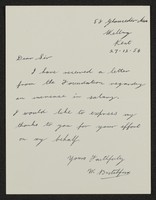 Gloucester Ave
Welling
Kent
29-12-58
Dear Sir
I have received a letter
from the Foundation regarding
an increase in salary.
I would like to express my
thanks to you for your effort
on my behalf.
Yours Faithfully
W.